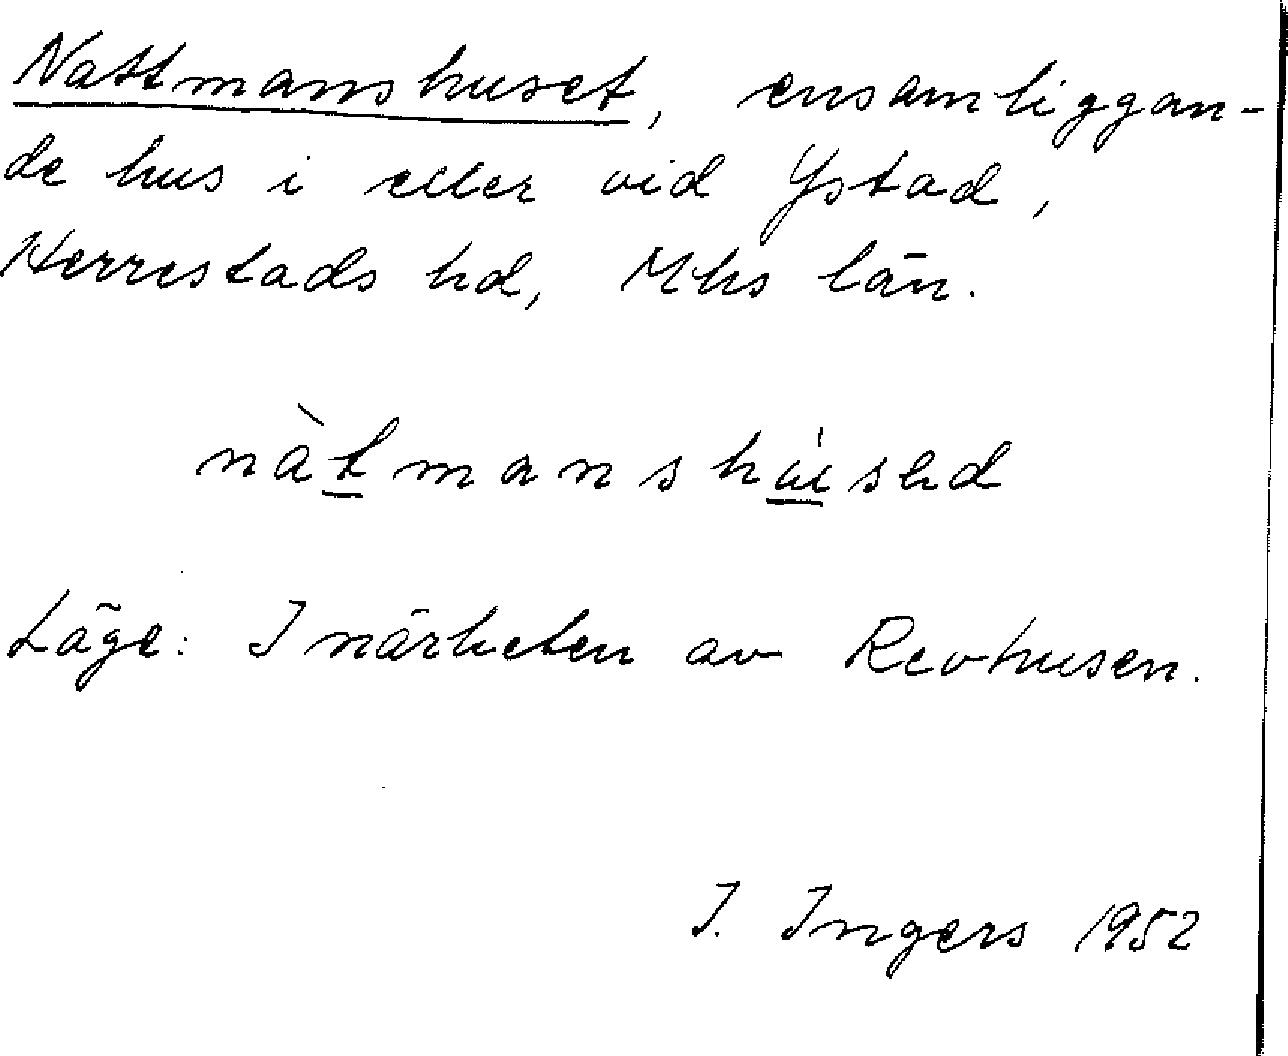 Nattmanshuset, ensamliggan-
de hus i eller vid Ystad,
Herrestads hd, Mhs län.
Läge: I närheten av Revhusen.
I. Ingers 1952